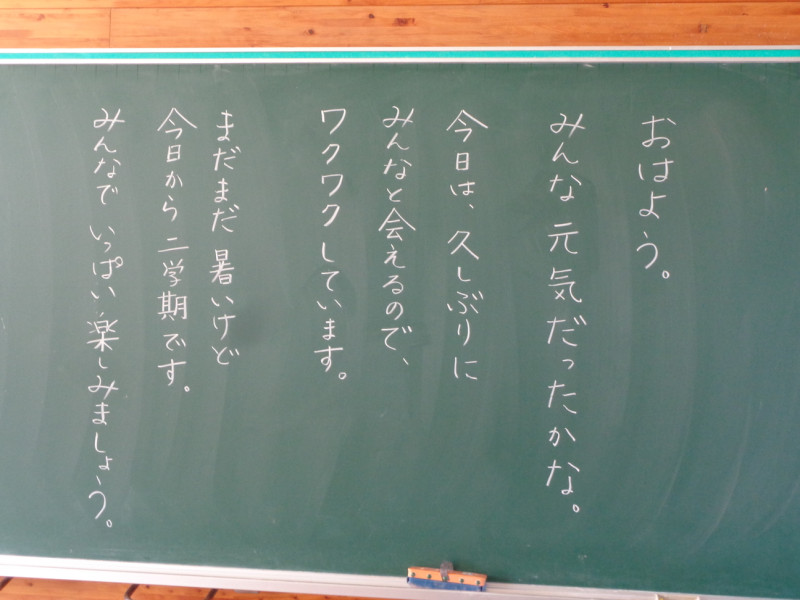 おはよう。
みんな 元気だったかな。
今日は、久しぶりに
みんなと会えるので、
ワクワクしています。
まだまだ 暑いけど
今日から 二学期です。
みんなで いっぱい 楽しみましょう。